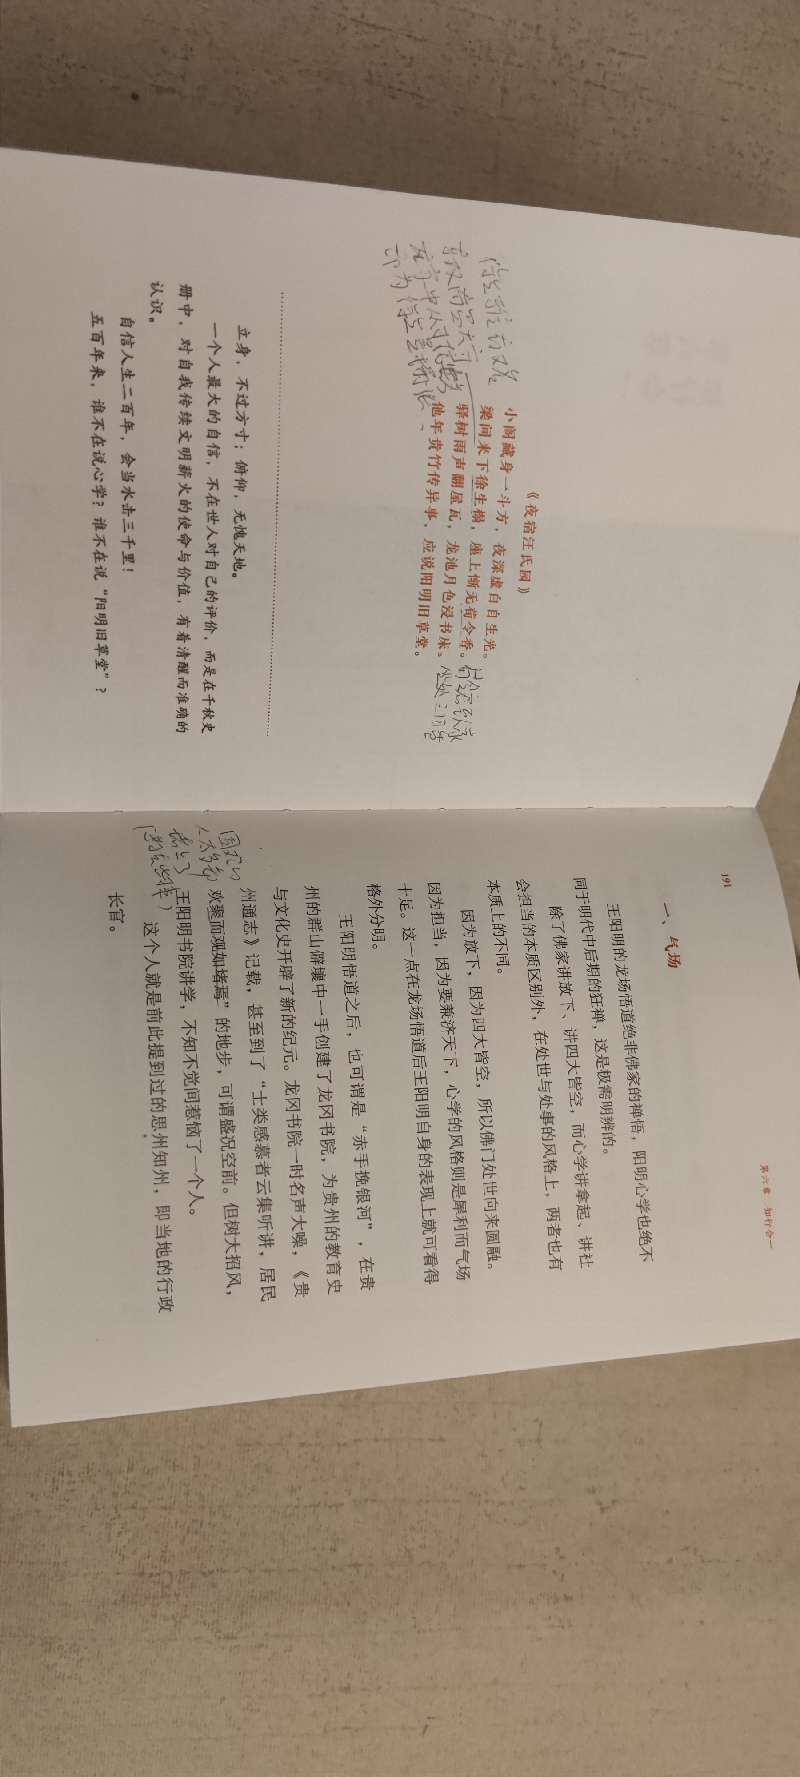 《夜宿汪氏园》
小阁藏身一斗方，夜深虚白自生光。
梁间来下徐生榻，座上惭无荀令香。
驿树雨声翻屋瓦，龙池月色浸书床。
他年贵竹传异事，应说阳明旧草堂。
立身，不过方寸；俯仰，无愧天地。
一个人最大的自信，不在世人对自己的评价，而是在千秋史
册中，对自我传续文明薪火的使命与价值，有着清醒而准确的
认识。
自信人生二百年，会当水击三千里！
五百年来，谁不在说心学？谁不在说“阳明旧草堂”？
191
第六章 知行合一
一、气场
王阳明的龙场悟道绝非佛家的禅悟，阳明心学也绝不
同于明代中后期的狂禅，这是极需明辨的。
除了佛家讲放下、讲四大皆空，而心学讲拿起、讲社
会担当的本质区别外，在处世与处事的风格上，两者也有
本质上的不同。
因为放下，因为四大皆空，所以佛门处世向来圆融。
因为担当，因为要兼济天下，心学的风格则是犀利而气场
十足。这一点在龙场悟道后王阳明自身的表现上就可看得
格外分明。
王阳明悟道之后，也可谓是“赤手挽银河”，在贵
州的群山僻壤中一手创建了龙冈书院，为贵州的教育史
与文化史开辟了新的纪元。龙冈书院一时名声大噪，《贵
州通志》记载，甚至到了“士类感慕者云集听讲，居民
欢聚而观如堵焉”的地步，可谓盛况空前。但树大招风，
王阳明书院讲学，不知不觉间惹恼了一个人。
这个人就是前此提到过的思州知州，即当地的行政
长官。